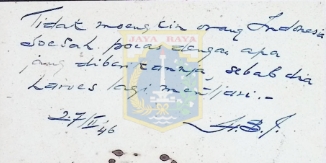 Tidak moengkin orang Indonesia
soesah poeas dengan apa
jang diberikannja sebab dia
haroes lagi mentjari.-
JAYA RAYA
27/II
46